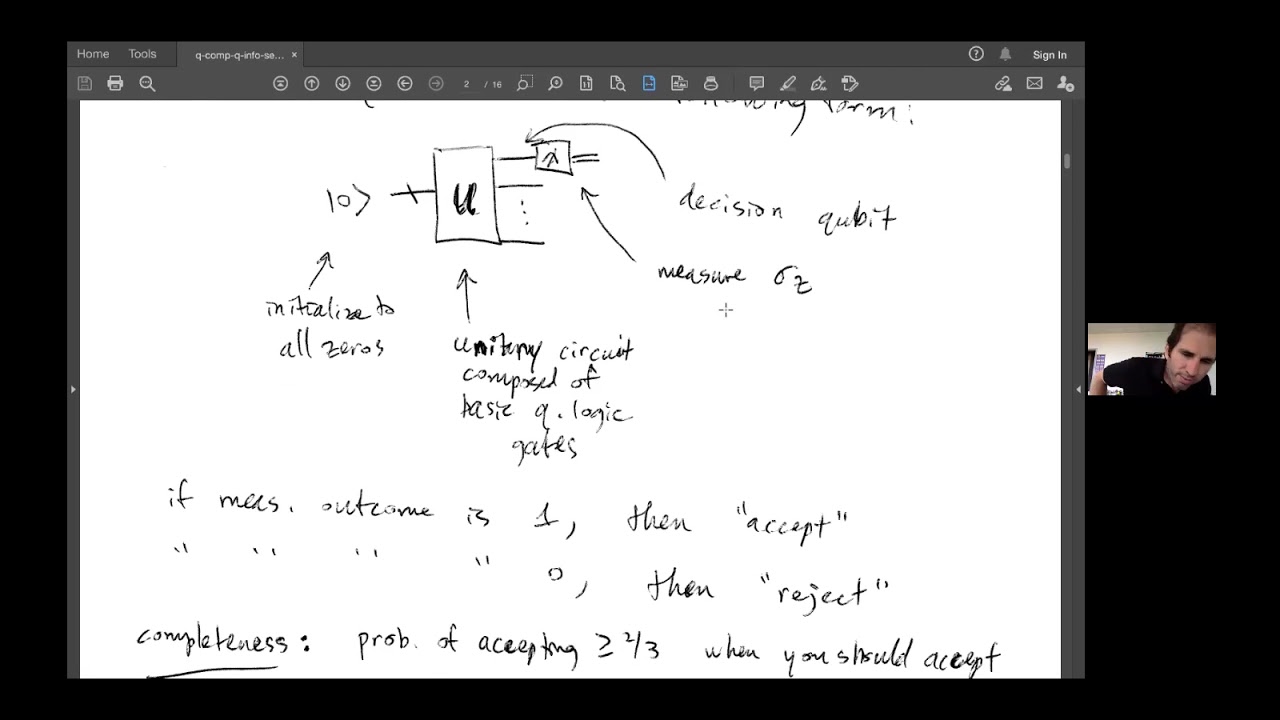 Home Tools q-comp-q-info-se... × Sign In
2 / 16
following form:
|0⟩ U
decision qubit
measure σz
initialize to
all zeros
unitary circuit
composed of
basic q. logic
gates
if meas. outcome is 1, then "accept"
" " " " 0, then "reject"
completeness: prob. of accepting ≥ 2/3 when you should accept